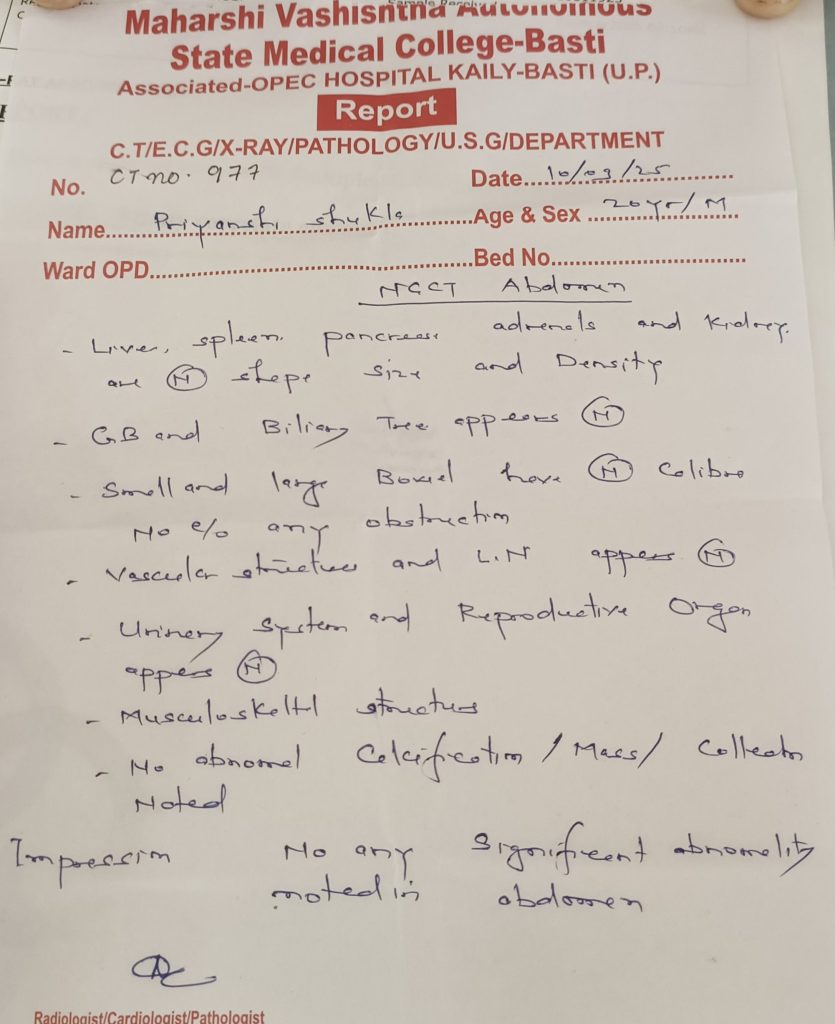 Maharshi Vashisntha Autonomous
State Medical College-Basti
Associated-OPEC HOSPITAL KAILY-BASTI (U.P.)
Report
C.T/E.C.G/X-RAY/PATHOLOGY/U.S.G/DEPARTMENT
No. CT no. 977 Date....10/03/25
Name....Priyanshi Shukla....Age & Sex ....20yr/M
Ward OPD....Bed No....
NCCT Abdomen
- Liver, spleen, pancreas, adrenals and Kidney.
are (N) shape size and Density
- GB and Biliary Tree appears (N)
- Small and large Bowel have (N) Calibre
No e/o any obstruction
- Vascular structures and L.N appears (N)
- Urinary System and Reproductive Organ
appers (N)
- Musculoskeltl structures
- No abnomel Calcification / Mass / Collection
Noted
Impression No any Significant abnomelity
noted in abdomen
Radiologist/Cardiologist/Pathologist